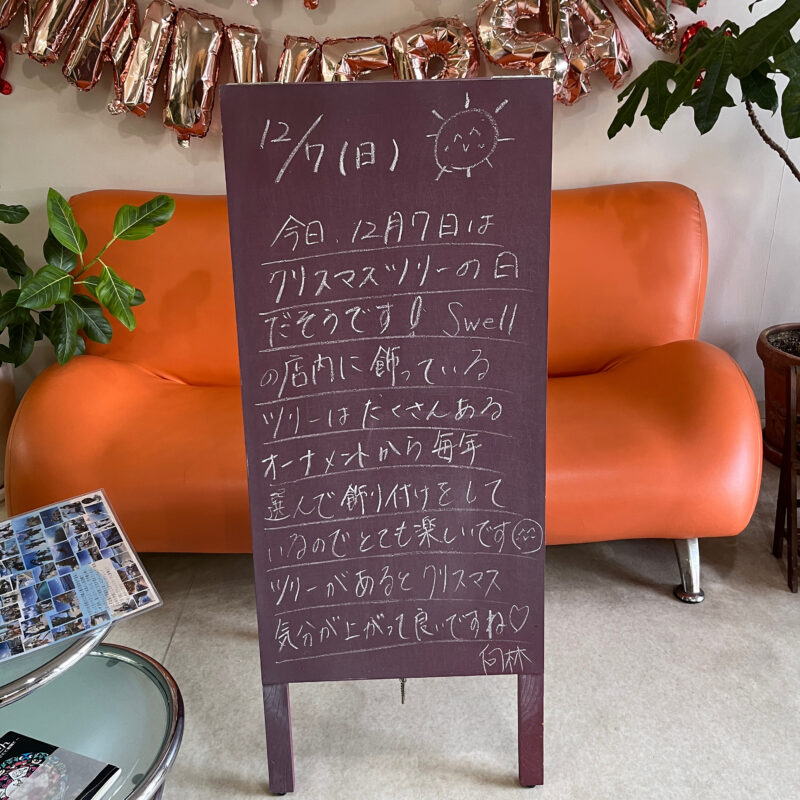 12/7(日)
今日、12月7日は
クリスマスツリーの日
だそうです! Swell
の店内に飾っている
ツリーはたくさんある
オーナメントから毎年
選んで飾り付けをして
いるのでとても楽しいです
ツリーがあるとクリスマス
気分が上がって良いですね♡
向林